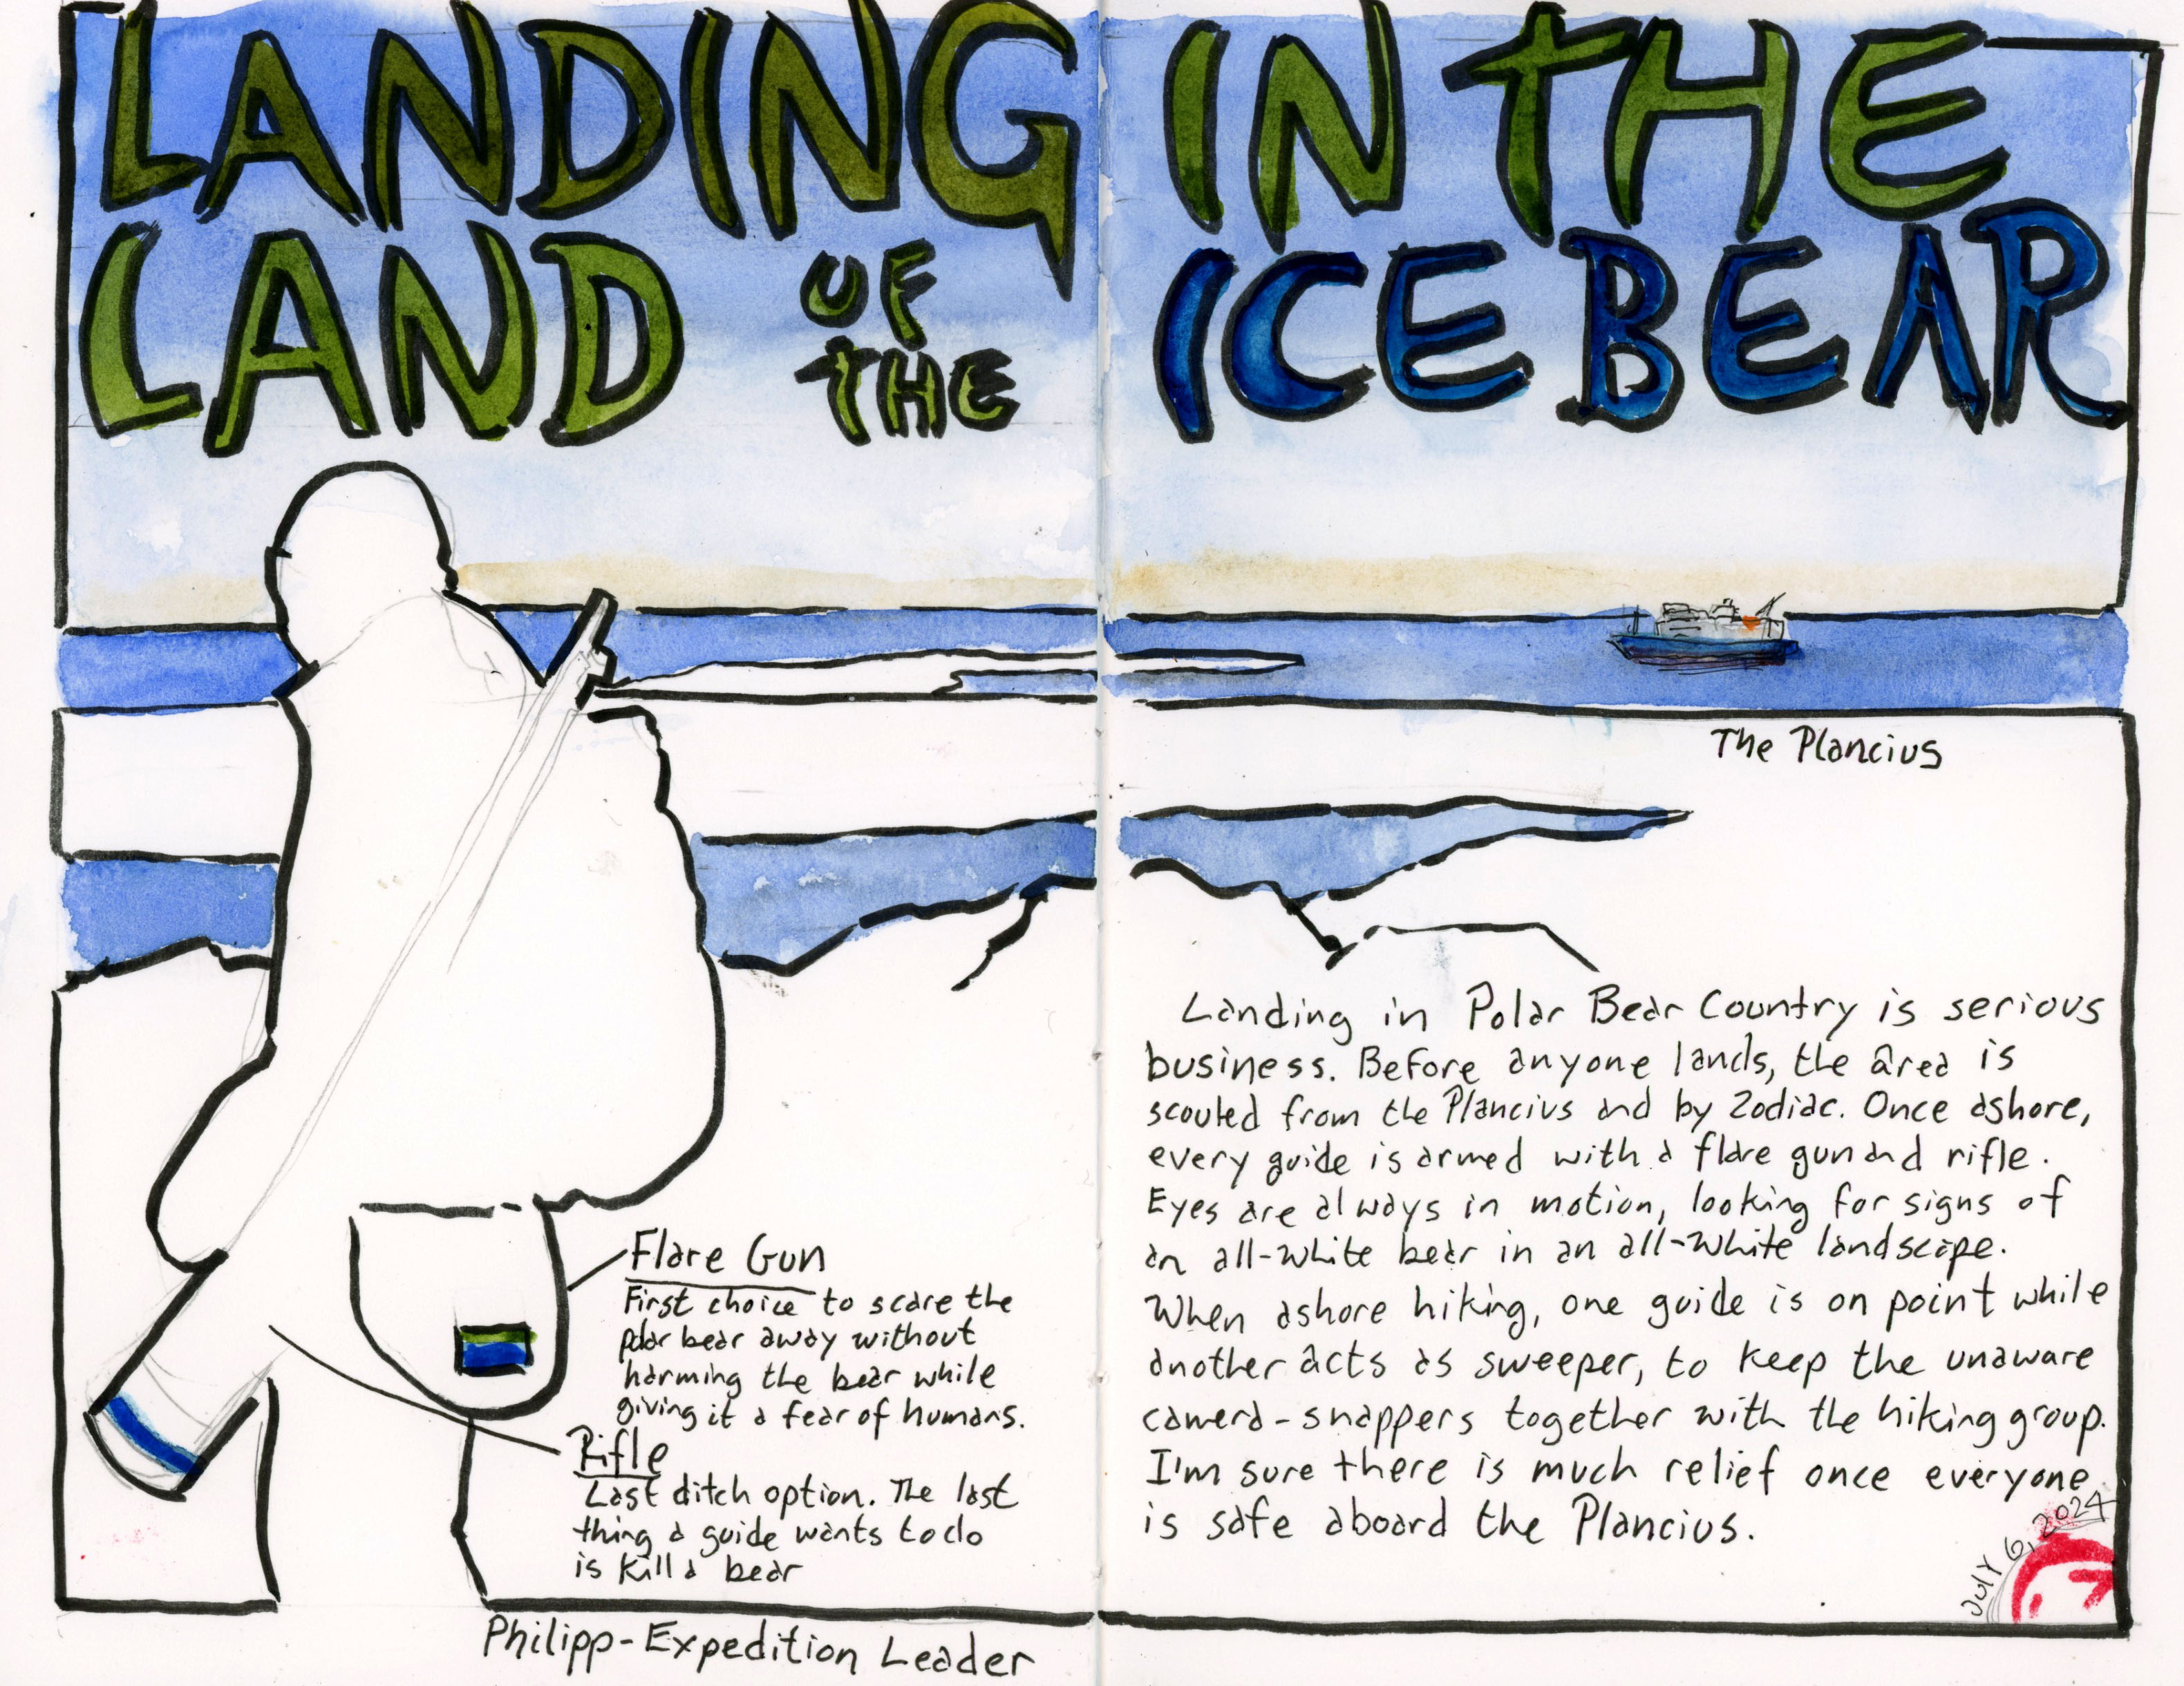 LANDING IN THE
LAND OF THE ICE BEAR
The Plancius
Flare Gun
First choice to scare the
polar bear away without
harming the bear while
giving it a fear of humans.
Rifle
Last ditch option. The last
thing a guide wants to do
is kill a bear
Philipp-Expedition Leader
Landing in Polar Bear Country is serious
business. Before anyone lands, the area is
scouted from the Plancius and by Zodiac. Once ashore,
every guide is armed with a flare gun and rifle.
Eyes are always in motion, looking for signs of
an all-white bear in an all-white landscape.
When ashore hiking, one guide is on point while
another acts as sweeper, to keep the unaware
camera-snappers together with the hiking group.
I'm sure there is much relief once everyone
is safe aboard the Plancius.
JULY 6, 2024